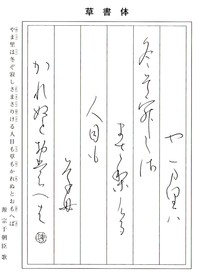 草書体
や万里ハ
冬そ寂し佐
まさ梨ける
人目も
草毋
かれぬとおもへハ
やま里は冬ぞ寂しさまさりける人目も草もかれぬとおもへば
源宗于朝臣 歌